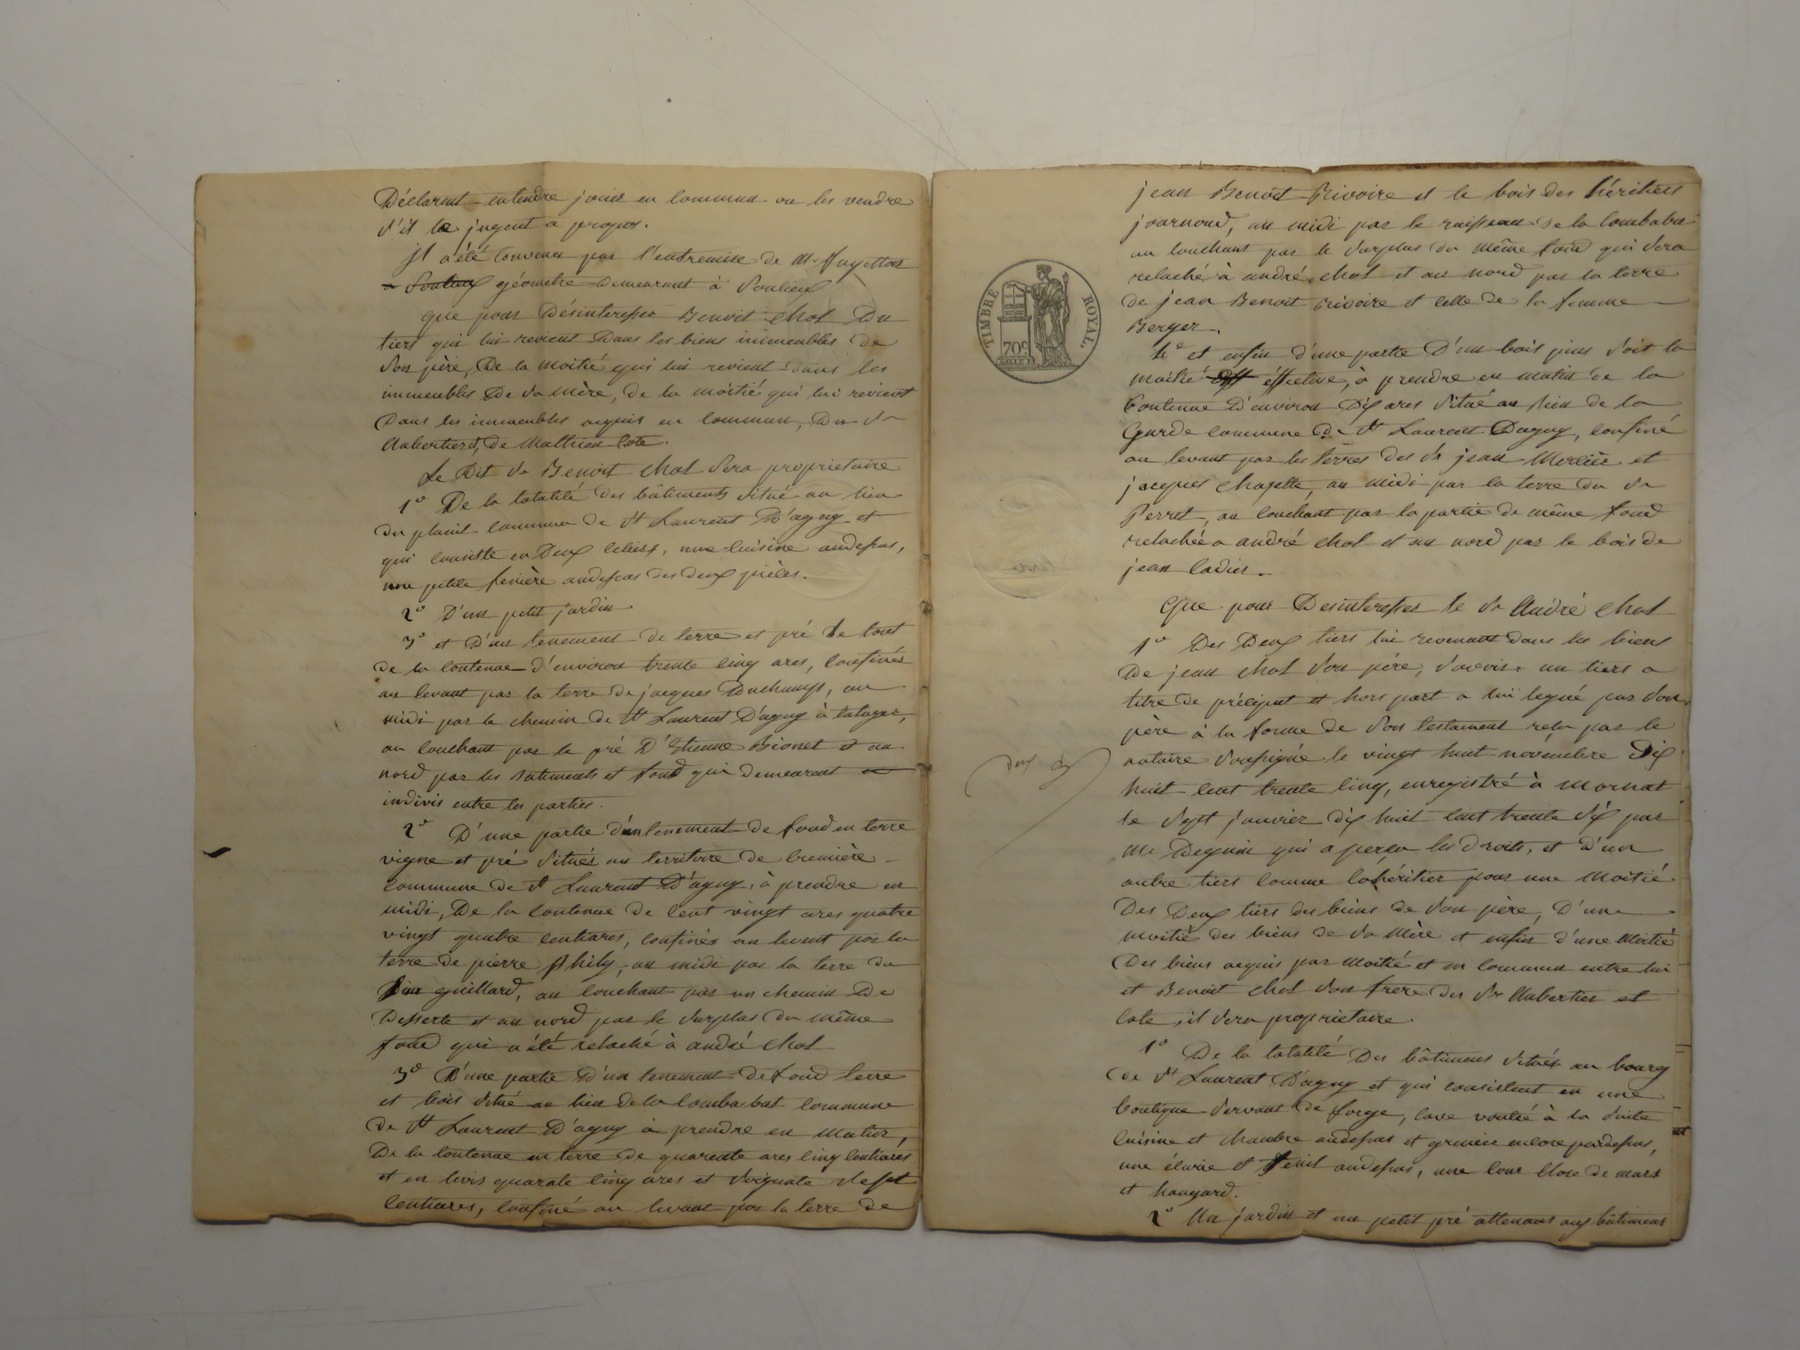 Déclarent entendre jouir en commun ou les vendre
s'il le jugent a propos.
il a été convenu par l'entremise de Mr
géomètre demeurant à Soulieux
que pour Désinteresser Benoit Chol Du
tiers qui lui revient Dans les biens immeubles de
Son père, De la moitié qui lui revient dans les
immeubles De Sa mère, de la moitié qui lui revient
Dans les immeubles acquis en commun, Du Sr
Aubertier, de Mathieu Cote.
Le Dit Sr Benoit Chol Sera proprietaire
1° De la totalité des bâtiments Situé au lieu
du plauil commune de St Laurent D'agny et
qui consiste en Deux celiers, une cuisine audessus,
une petite feniére audessus des deux pièces.
2° D'un petit jardin
3° et D'un tenement de terre et pré Le tout
de la contenue d'environ trente cinq ares, confinés
au levant par la terre de jacques Duchamp, au
midi par le chemin de St Laurent D'agny à taluyer,
au couchant par le pré D'Etienne Bionet et au
nord par les batiments et fond qui demeurent en
indivis entre les parties.
2° D'une partie d'un tenement de fond en terre
vigne et pré Situés au territoire de bremière
commune de St Laurent D'agny, à prendre en
midi, De la contenue de cent vingt ares quatre
vingt quatre centiares, confinés au levant par la
terre de pierre philis, au midi par la terre du
Sieur guillard, au couchant par un chemin De
Desserte et au nord par le Surplus du même
fond qui a été relaché à andré Chol
3° D'une partie d'un tenement De fond terre
et bois Situé au lieu de la combabat commune
de St Laurent D'agny à prendre en matin,
De la contenue en terre de quarente ares cinq centiares
et en bois quarale cinq ares et Soixante Sept
centiares, confiné au levant par la terre de
jean Benoit Rivoire et le bois des héritiers
journoud, au midi par le ruisseau de la combabat
au couchant par le Surplus du même fond qui Sera
relaché à andré Chol et au nord par la terre
de jean Benoit Rivoire et celle de la femme
Berger.
4° et enfin d'une partie D'un bois pins Soit la
moitié éffective, à prendre en matin de la
Contenue D'environ Dix ares Situé au lieu de la
Garde commune de St Laurent Dagny, confiné
au levant par les terres des Sr jean Merlier et
jacques Chazotte, au midi par la terre du Sr
Perret, au couchant par la partie de même fond
relachée a andré Chol et au nord par le bois de
jean Cadier.
TIMBRE ROYAL.
70c
Que pour Desinteresser le Sr André Chol
1° Des Deux tiers lui revenant dans les biens
De jean Chol Son père, Savoir un tiers a
titre de préciput et hors part a lui legué par Son
père à la forme de Son testament reçu par le
notaire Soussigné le vingt huit novembre Dix
huit cent trente cinq, enregistré à Mornant
le Sept janvier dix huit cent trente Six par
Mr Deguin qui a perçu les droits, et d'un
autre tiers comme cohéritier pour une moitié
Des Deux tiers des biens de Son père, D'une
moitié des biens de Sa mère et enfin d'une moitié
Des biens acquis par moitié et en commun entre lui
et Benoit Chol Son frère des Srs Aubertier et
Cote, il Sera proprietaire.
1° De la totalité Des bâtimens Situés au bourg
de St Laurent D'agny et qui consistent en une
boutique Servant de forge, cave voutée à la Suite
cuisine et chambre audessus et grenier encore pardessus,
une écurie et fenil audessus, une cour close de murs
et hangard.
2° Un jardin et un petit pré attenant aux bâtimens